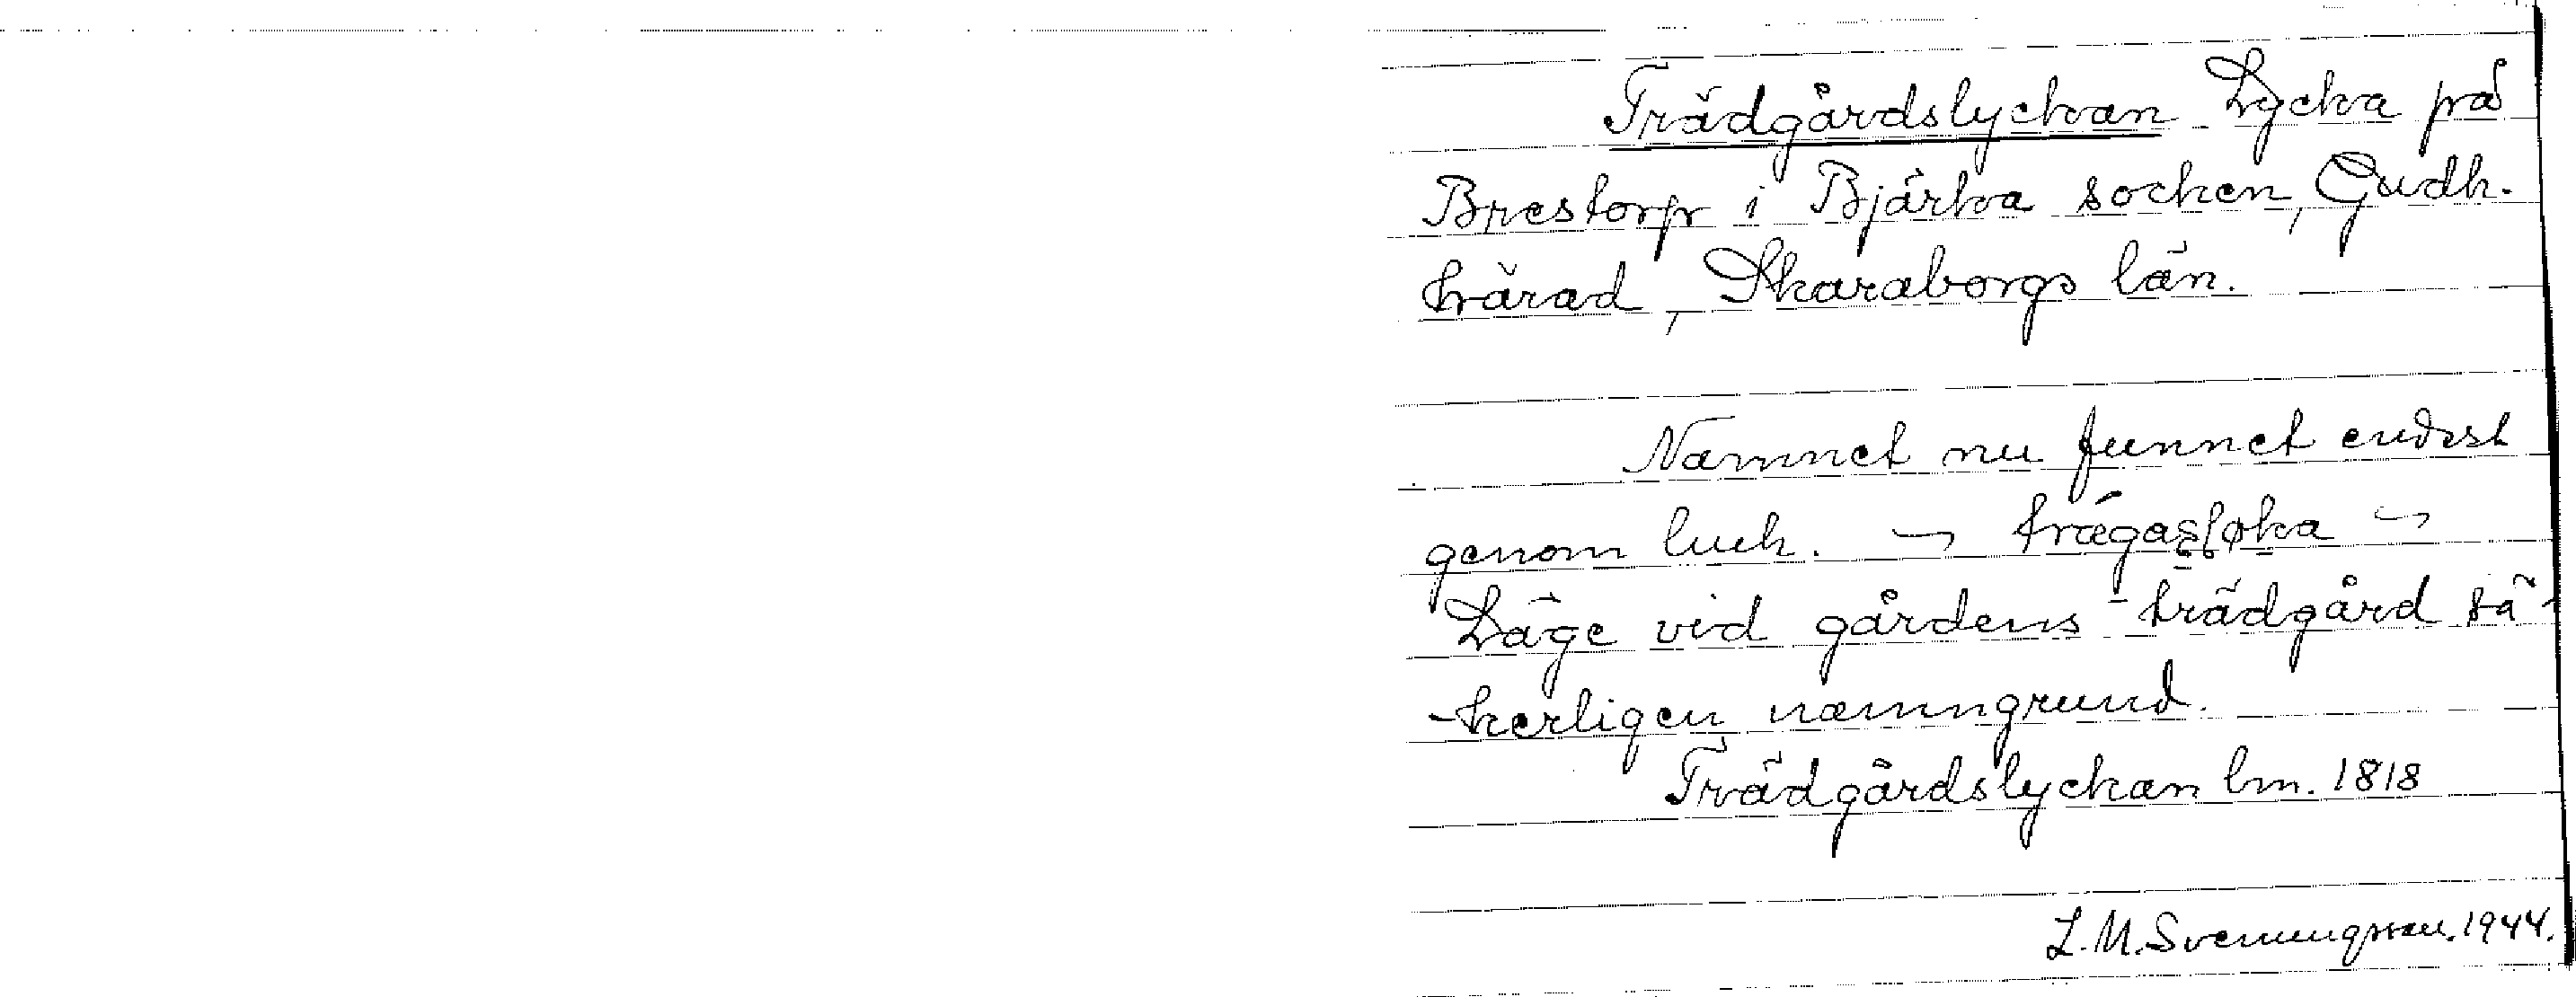 Trädgårdslyckan Lycka på
Brestorp i Bjärka socken, Gudh.
härad, Skaraborgs län.
Namnet nu funnet endast
genom luck.
Läge vid gårdens trädgård sä-
-kerligen namngrund.
Trädgårdslyckan lm. 1818
L. M. Svenungsson. 1944.